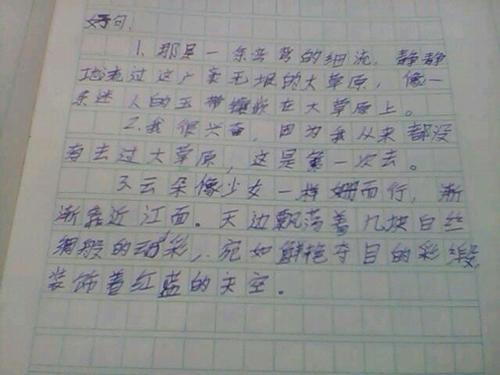 好句:
1. 那是一条弯弯的细流,静静
地走过这广袤无垠的大草原,像一
条迷人的玉带镶嵌在大草原上。
2.我很兴奋,因为我从来都没
有去过大草原,这是第一次去。
3.云朵像少女一样姗而行,渐
渐靠近江面。天边飘荡着几块白丝
绸般的细彩,宛如鲜艳夺目的彩缎,
装饰着红蓝的天空。